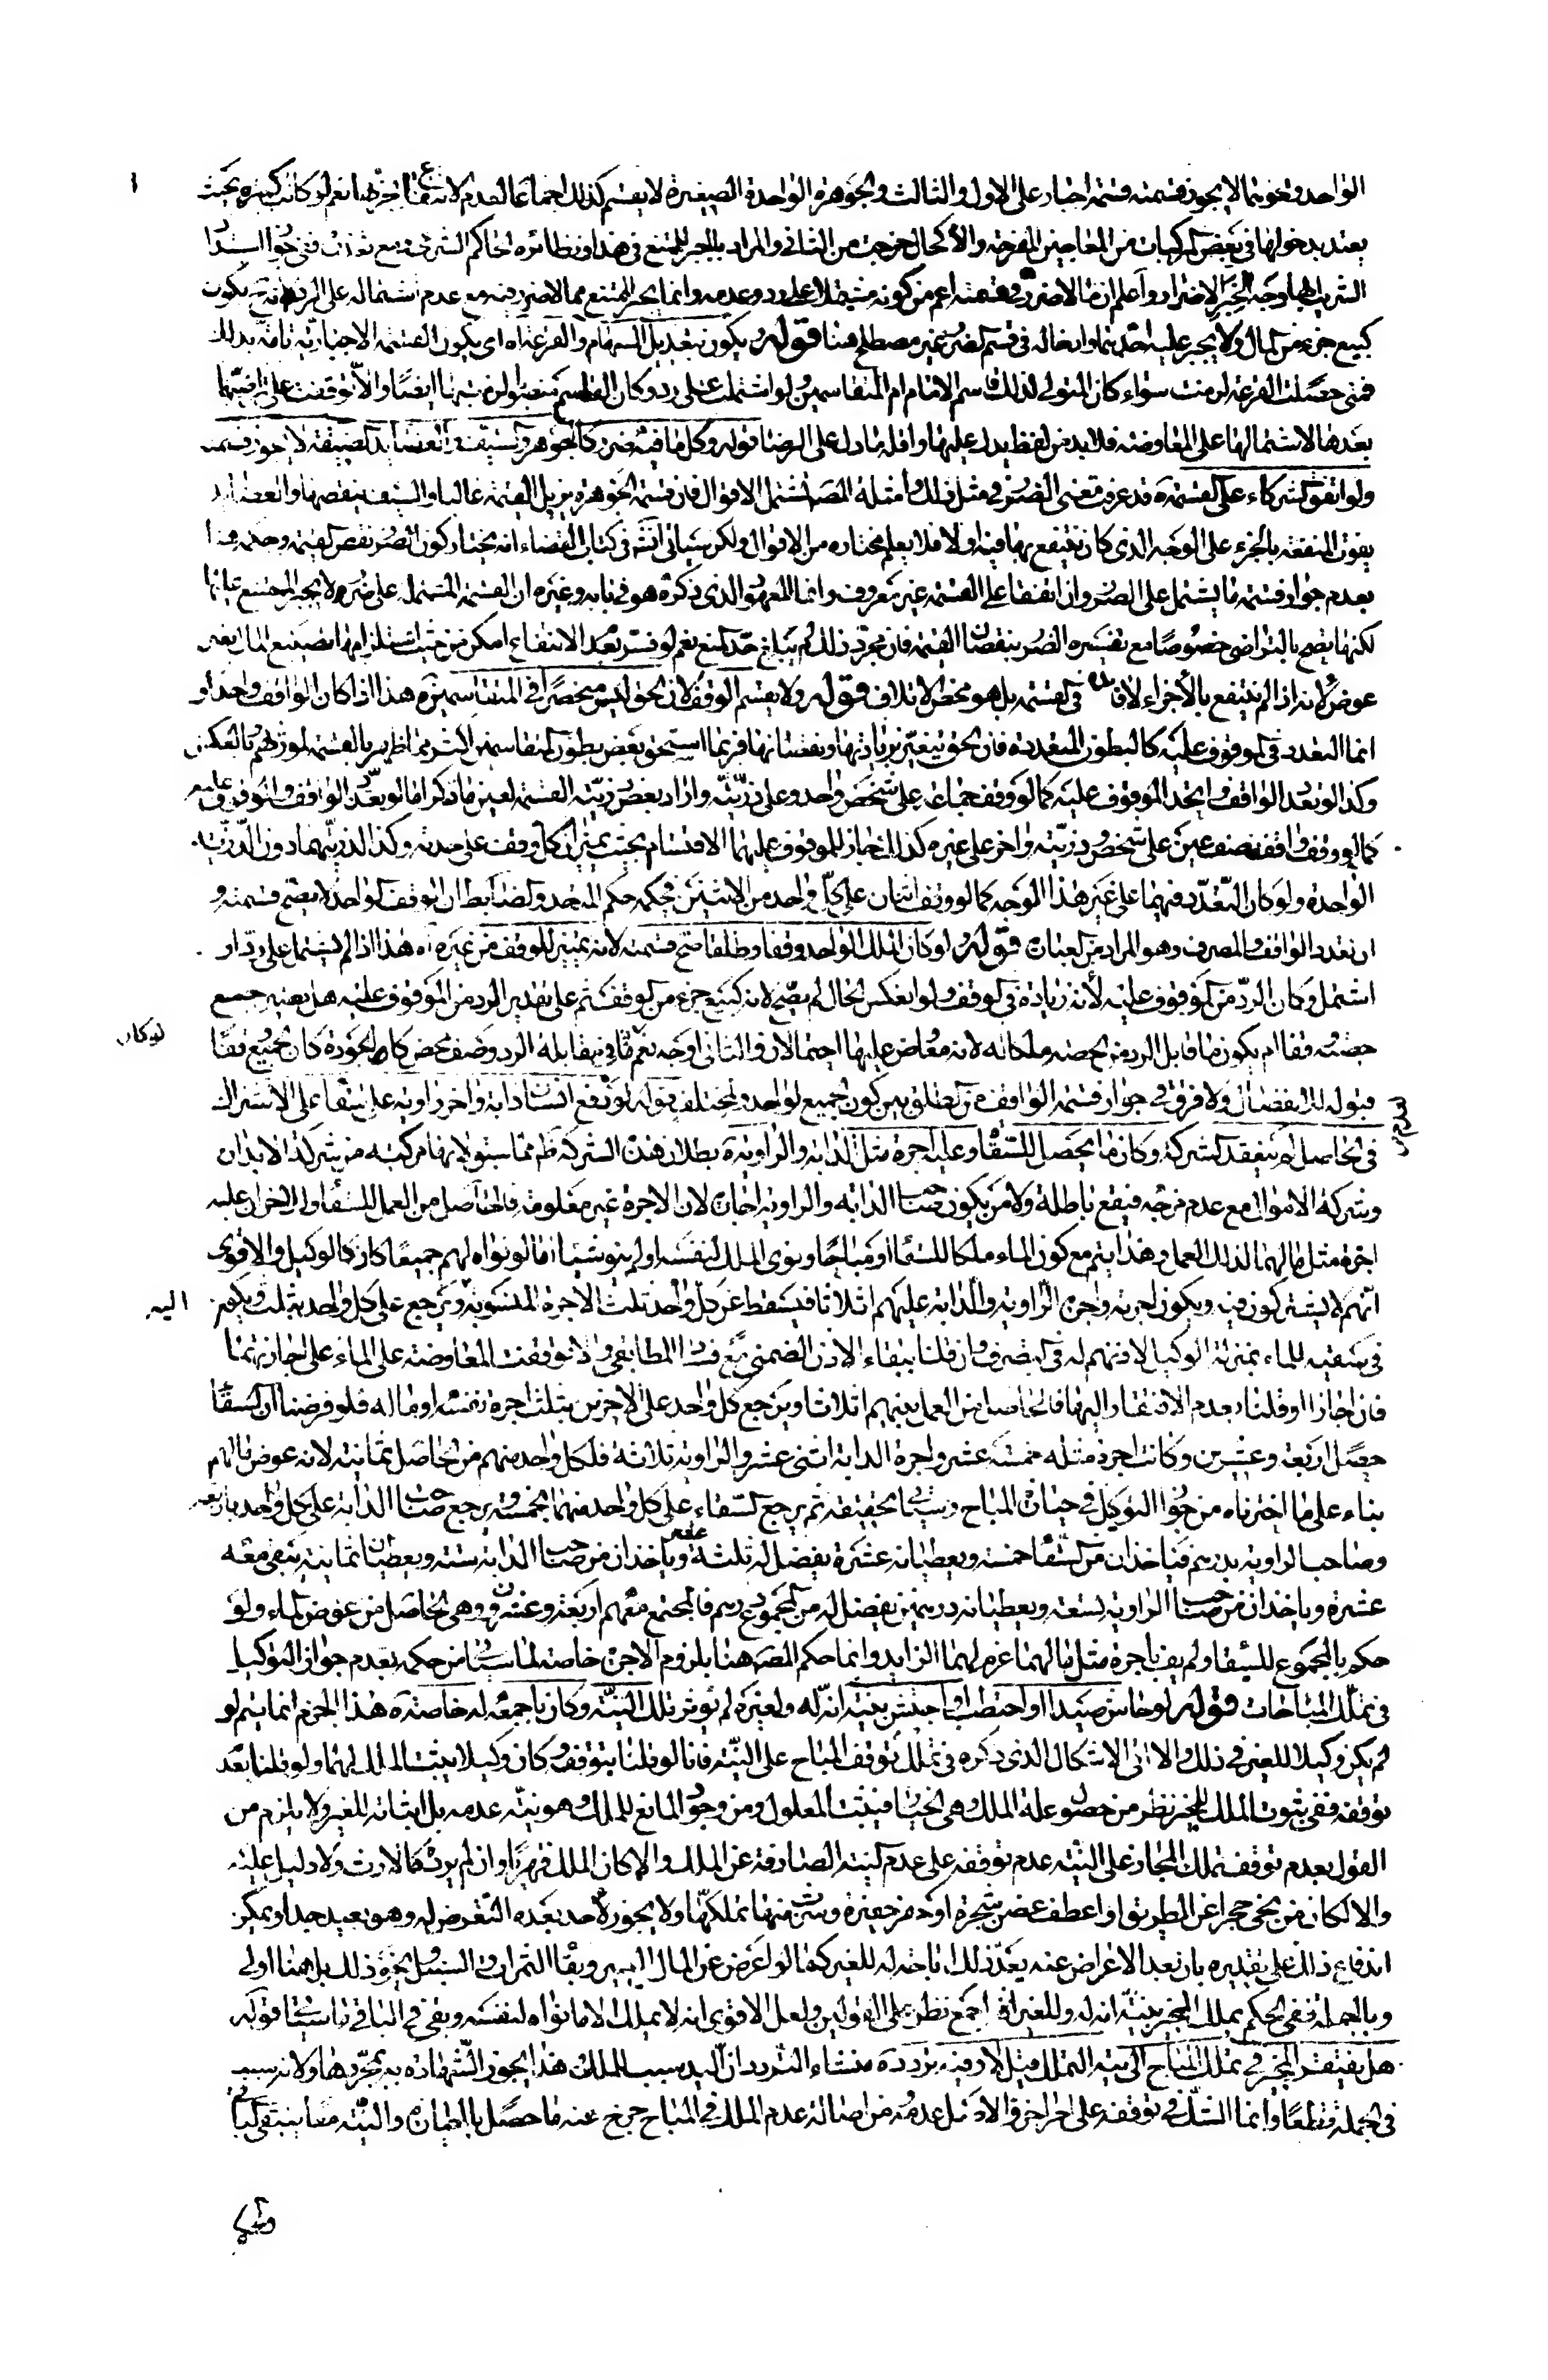 الواحد ونحوهما لا يجوز قسمته قسمة اجبار على الاول والثالث والجوهرة الواحدة الصغيرة لا يقسم كذلك اجماعا لعدم الانتفاع بجزئها نعم لو كانت كبيرة بحيث
يعتد بدخولها في بعض المركبات من المعاجين المفرحة والاكحال خرجت من الثاني والمراد بالمجبر للممتنع في هذا ونظائره الحاكم الشرعي ومع
الشريك بها وجه لجبر الاضرار واعلم ان ما لا ضرر في قسمته اعم من كونه مشتملا على رد وعدمه وانما يجبر الممتنع مما لا ضرر فيه مع عدم اشتماله على الرد لانه يكون
كبيع جزء من المال ولا يجبر عليه احدهما وادخاله في قسم الضرر غير مصطلح هنا قوله ويكون بتعديل السهام والقرعة اه اى يكون القسمة الاجبارية تامة بذلك
فمتى حصلت القرعة لزمت سواء كان المتولى لذلك قاسم الامام ام المتقاسمين ولو اشتملت على رد وكان القاسم منصوبا لزمت بها ايضا والا توقفت على تراضيهما
بعدها لاشتمالها على المعاوضة فلا بد من لفظ يدل عليها واقله ما دل على الرضا قوله وكل ما في قسمته ضرر كالجوهر والسيف والعضائد الضيقة لا يجوز قسمته
ولو اتفق الشركاء على القسمة ه قد عرفت معنى الضرر في مثل ذلك وامثلة المصـ تشمل الاقوال فان قسمة الجوهرة يزيل القيمة غالبا والسيف ينقصها والعضائد
يفوت المنفعة بالجزء على الوجه الذى كان ينتفع بها فيه اولا فلا يعلم مختاره من الاقوال ولكن سيأتي انه في كتاب القضاء انه يختار كون الضرر نقص القيمة وحكمه هنا
بعدم جواز قسمة ما يشتمل على الضرر وان اتفقا على القسمة غير معروف وانما المعهود الذى ذكره هو في بابه وغيره ان القسمة المشتملة على ضرر لا يجبر الممتنع عليها
لكنها يصح بالتراضى خصوصا مع تفسيره الضرر بنقصان القيمة فان مجرد ذلك لم يبلغ حد المنع نعم لو فسر بعدم الانتفاع امكن من حيث استلزامها تضييع المال بغير
عوض لانه اذا لم ينتفع بالاجزاء لا فائدة في القسمة بل هو محض الاتلاف قوله ولا يقسم الوقف لان الحق ليس منحصرا في المتقاسمين ه هذا اذا كان الواقف واحدا و
انما التعدد في الموقوف عليه كالبطون المتعددة فان الحق يتغير بزيادتها ونقصانها فربما استحق بعض بطون المتقاسمين اكثر مما ظهر بالقسمة لمورثهم وبالعكس
وكذا لو تعدد الواقف واتحد الموقوف عليه كما لو وقف جماعة على شخص واحد وعلى ذريته واراد بعض ذريته القسمة لعين ما ذكر اما لو تعدد الواقف والموقوف عليه
كما لو وقف واقف نصف عين على شخص وذريته واخر على غيره كذلك جاز للموقوف عليهما الاقتسام بحيث يتميز كل وقف على حدته وكذا لذريتهما دون الذرية
الواحدة ولو كان التعدد فيهما على غير هذا الوجه كما لو وقف اثنان على كل واحد من الاثنين فحكمه حكم المتحد والضابط ان الوقف الواحد لا يصح قسمته و
ان تعدد الواقف والمصرف وهو المراد من العبارة قوله ولو كان الملك الواحد وقفا وطلقا صح قسمته لانه تمييز للوقف من غيره اه هذا اذا لم يشتمل على رد او
اشتمل وكان الرد من الموقوف عليه لانه زيادة في الوقف ولو انعكس الحال لم يصح لانه كبيع جزء من الوقف ثم على تقدير الرد من الموقوف عليه هل يصير جميع
حصته وقفا ام يكون ما قابل الرد من الحصة ملكا له لانه معاوض عليها احتمالان والثانى اوجه نعم لو كان ما في مقابلة الرد وصف محض كالجودة كان الجميع وقفا
لو كان
قبوله للانفصال ولا فرق في جواز قسمة الوقف من الطلق بين كون الجميع لواحد والمختلف قوله لو دفع انسان دابة واخر راوية على سقاء على الاشتراك
في الحاصل لم ينعقد الشركة وكان ما يحصل للسقاء وعليه اجرة مثل الدابة والراوية ه بطلان هذه الشركة ظم مما سبق لانها مركبة من شركة الابدان
وشركة الاموال مع عدم مزجه فيقع باطلة ولا من يكون صاحب الدابة والراوية اجارة لان الاجرة غير معلومة فالحاصل من العمل للسقاء وللاخرين عليه
اجرة مثل مالهما لذلك العمل وهذا يتم مع كون الماء ملكا للسقاء او مباحا ونوى الملك لنفسه او لم ينو شيئا اما لو نواه لهم جميعا كان كالوكيل والاقوى
انهم لا يشتركون فيه ويكون اجرته واجرة الراوية والدابة عليهم اثلاثا فيسقط عن كل واحد ثلث الاجرة المنسوبة اليه ويرجع على كل واحد بثلث ويكون
اليه
في سقيه للماء بمنزلة الوكيل لاذنهم له في التصرف وان قلنا ببقاء الاذن الضمنى مع فساد المطابقى والا توقفت المعاوضة على الماء على اجازتهما
فان اجازا او قلنا بعدم الافتقار اليها فالحاصل من العمل بينهم اثلاثا ويرجع كل واحد على الاخرين بثلث اجرة نفسه او ماله فلو فرضنا ان السقاء
حصل اربعة وعشرين وكانت اجرة مثله خمسة عشر واجرة الدابة اثنى عشر والراوية ثلاثة فلكل واحد منهم من الحاصل ثمانية لانه عوض مالهم
بناء على ما اخترناه من جواز التوكيل في حيازة المباح وسيأتى تحقيقه ثم يرجع السقاء على كل واحد منهما بخمسة ويرجع صاحب الدابة على كل واحد باربعة
وصاحب الراوية بدرهم فيأخذان من السقاء خمسة ويعطيانه عشرة يفضل له ثلثة عشر ويأخذان من صاحب الدابة ستة ويعطيان ثمانية يبقى معه
عشرة ويأخذان من صاحب الراوية تسعة ويعطيانه درهمين يفضل له من المجموع درهم فالمجتمع معهم اربعة وعشرون وهى الحاصل من عوض الماء ولو
حكم بالمجموع للسقاء ولم يف باجرة مثل مالهما غرم لهما الزايد وانما حكم المصـ هنا بلزوم الاجرة خاصة لما سيأتى من حكمه بعدم جواز التوكيل
في تملك المباحات قوله لو حاش صيدا او احتطب او احتش بنية انه له ولغيره لم يؤثر تلك النية وكان باجمعه له خاصة ه هذا الجزم انما يتم لو
لم يكن وكيلا للغير في ذلك والا اتى الاشكال الذى ذكره في تملك توقف المباح على النية فانا لو قلنا بتوقفه وكان وكيلا يثبت الملك لهما ولو قلنا بعد
توقفه ففى ثبوت الملك للمحيز نظر من حصول علة الملك وهى الحيازة فيثبت المعلول ومن وجود المانع للملك وهو نية عدمه بل اثباته للغير ولا يلزم من
القول بعدم توقف تملك المحاز على النية عدم توقفه على عدم النية الصارفة عن الملك والا كان الملك قهريا وان لم يرده كالارث ولا دليل عليه
والا لكان من نحى حجرا عن الطريق او اعطف غصن شجرة او حفر حفيرة وشرب منها تملكها ولا يجوز لاحد بعده التعرض له وهو بعيد جدا ويمكن
اندفاع ذلك على تقديره بان بعد الاعراض عنه يعد ذلك اباحة له للغير كما لو اعرض عن المال اليسير وبقايا الثمرة والسنبل ونحو ذلك بل هنا اولى
وبالجملة ففى الحكم بملك المحيز بنية انه له وللغير في اجمع نظر على القولين ولعل الاقوى انه لا يملك الا ما نواه لنفسه وبقى في الباقى ما سيأتى قوله
هل يفتقر المحيز في تملك المباح الى نية التملك قيل لا وفيه تردد ه منشاء التردد ان اليد سبب الملك هذا يجوز الشهادة به بمجردها ولانه سبب
في الجملة قطعا وانما الشك في توقفه على امر اخر والاصل عدمه من اصالة عدم الملك في المباح خرج عنه ما حصل بالحيازة والنية معا فيبقى الباقى